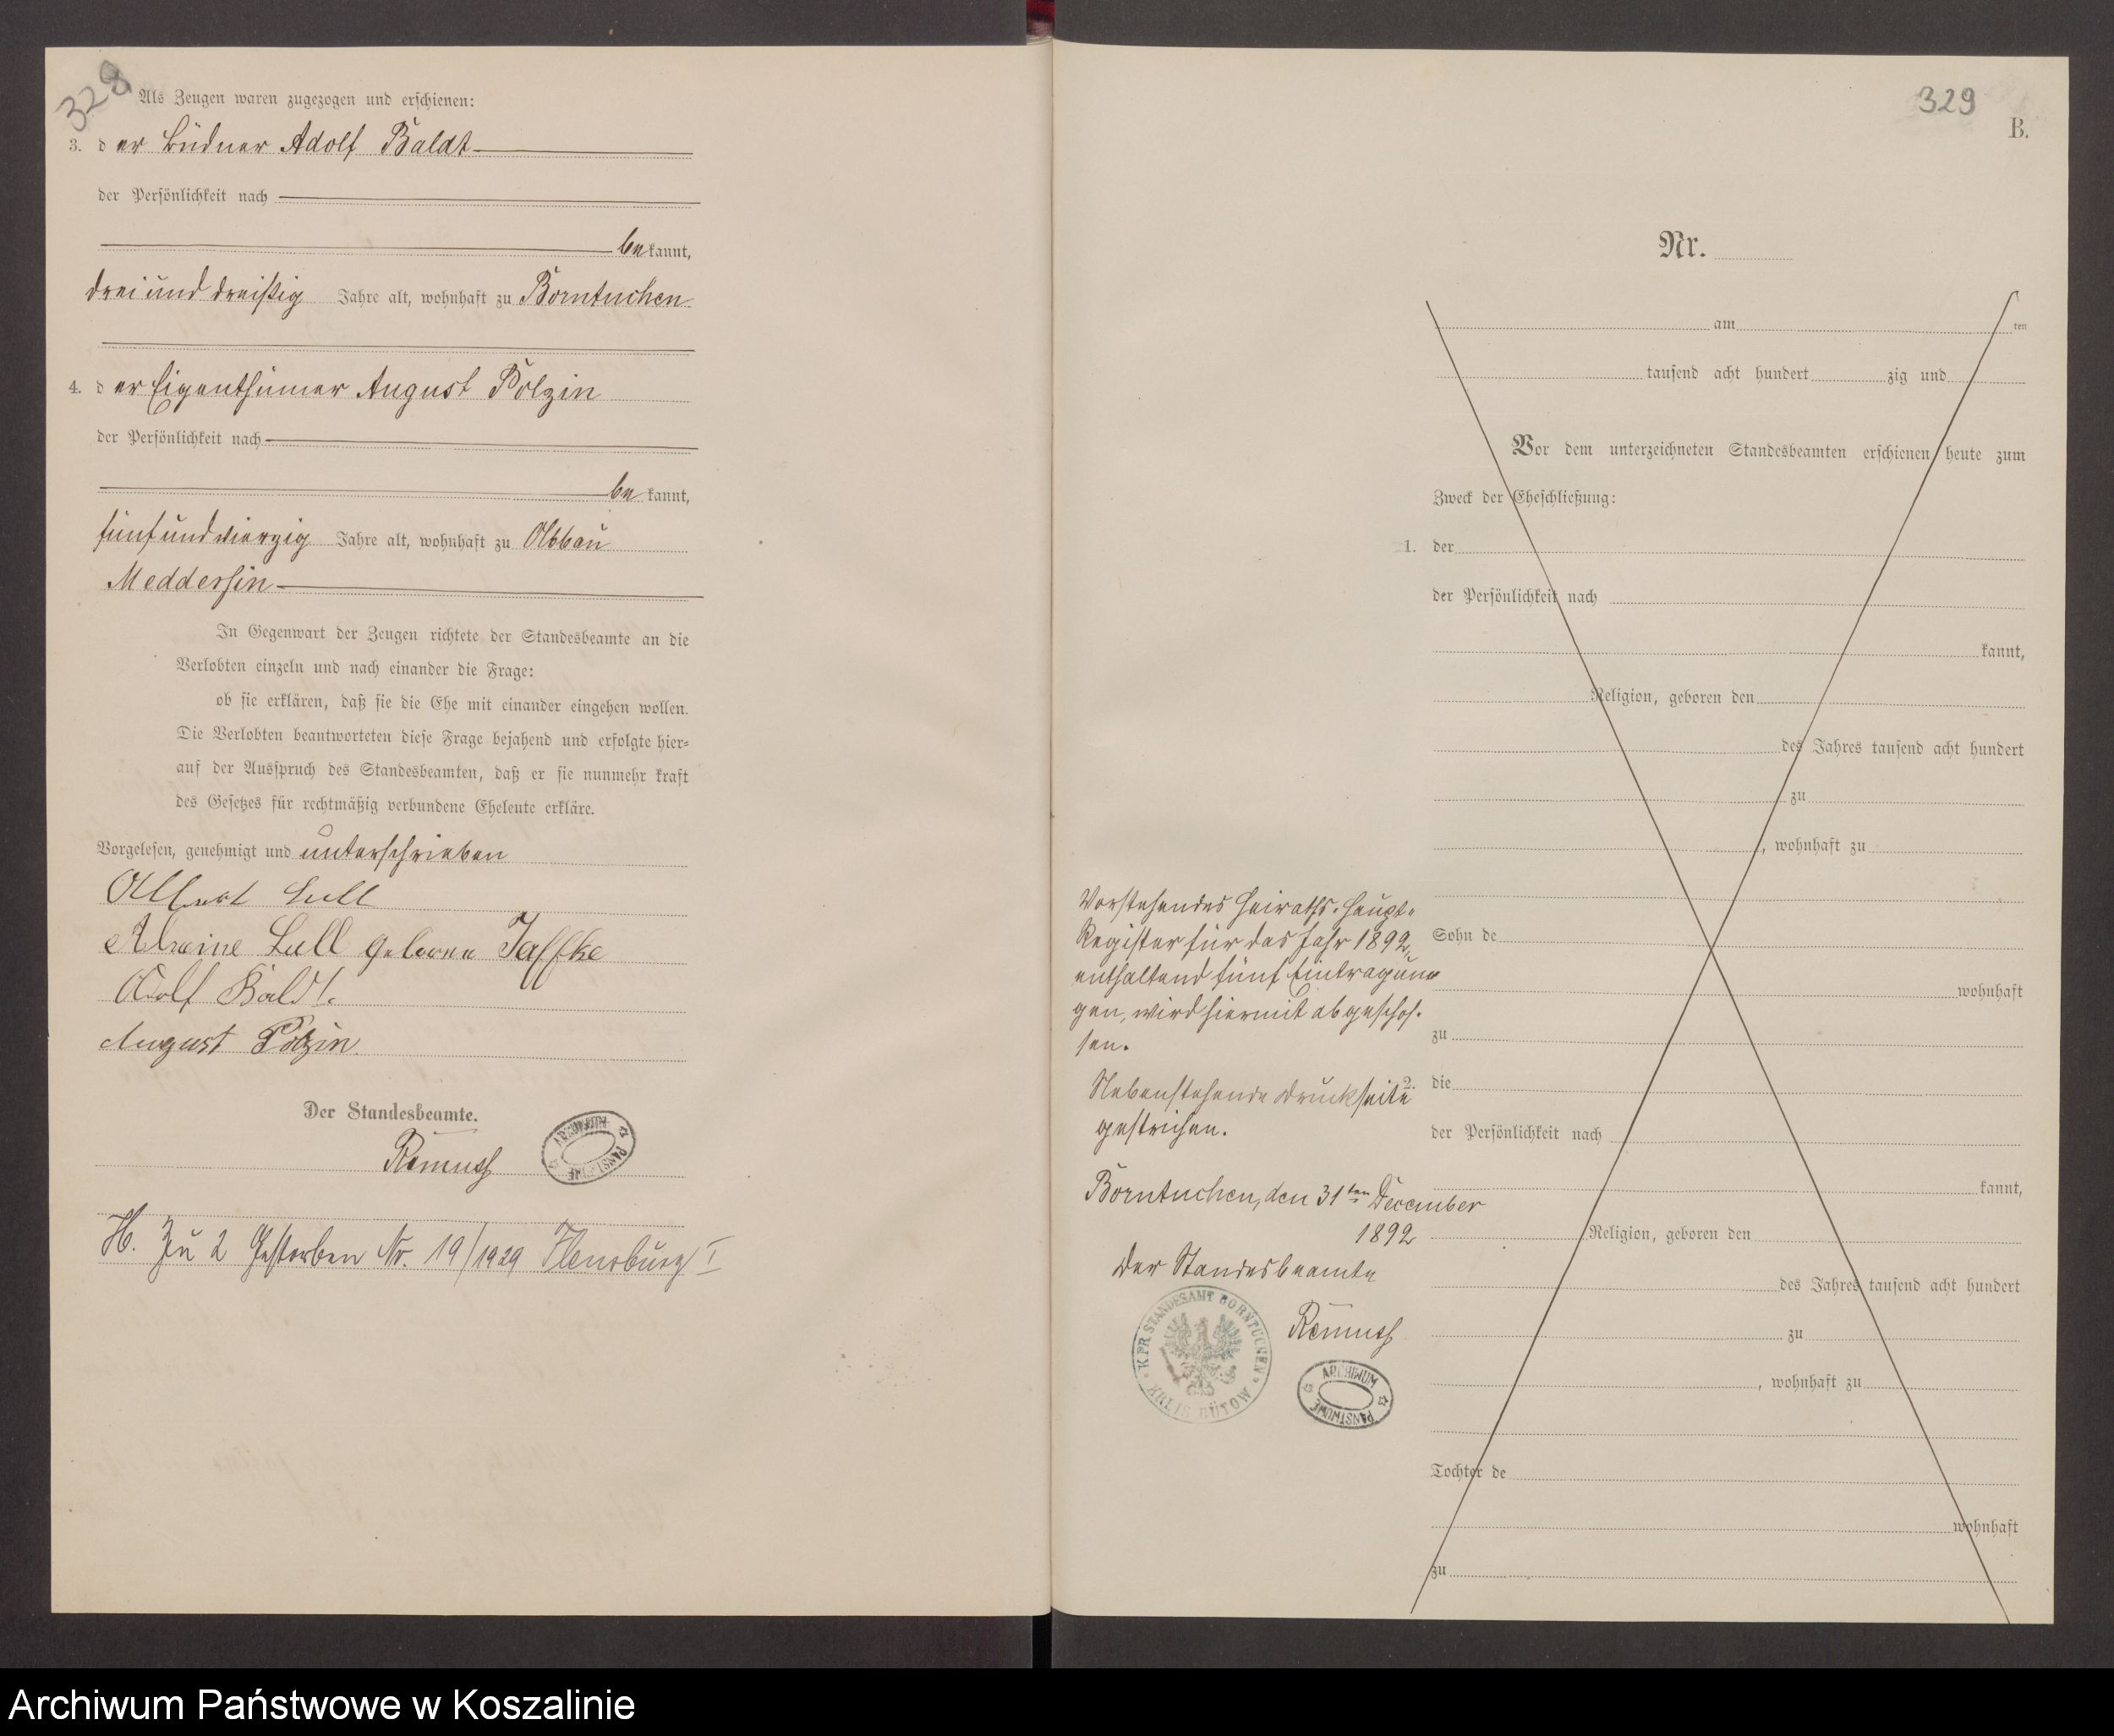 328
Als Zeugen waren zugezogen und erschienen:
3. der Büdner Adolf Baldt
der Persönlichkeit nach
bekannt,
drei und dreißig Jahre alt, wohnhaft zu Borntuchen
4. der Eigenthümer August Polzin
der Persönlichkeit nach
bekannt,
fünf und vierzig Jahre alt, wohnhaft zu Abbau
Meddersin
In Gegenwart der Zeugen richtete der Standesbeamte an die
Verlobten einzeln und nach einander die Frage:
ob sie erklären, daß sie die Ehe mit einander eingehen wollen.
Die Verlobten beantworteten diese Frage bejahend und erfolgte hier-
auf der Ausspruch des Standesbeamten, daß er sie nunmehr kraft
des Gesetzes für rechtmäßig verbundene Eheleute erkläre.
Vorgelesen, genehmigt und unterschrieben
Albert Lull
Lull geborene Jaffke
Adolf Baldt.
August Polzin.
Der Standesbeamte.
ARCHIWUM PAŃSTWOWE
H. Zu 2 Gestorben Nr. 19/1929 Flensburg I
329
B.
Nr.
am ten
tausend acht hundert zig und
Vor dem unterzeichneten Standesbeamten erschienen heute zum
Zweck der Eheschließung:
1. der
der Persönlichkeit nach
kannt,
Religion, geboren den
des Jahres tausend acht hundert
zu
, wohnhaft zu
Sohn de
wohnhaft
zu
2. die
der Persönlichkeit nach
kannt,
Religion, geboren den
des Jahres tausend acht hundert
zu
, wohnhaft zu
Tochter de
wohnhaft
zu
Vorstehendes Heiraths-Haupt-
Register für das Jahr 1892,
enthaltend fünf Eintragun-
gen, wird hiermit abgeschlos-
sen.
Nebenstehende Druckseite
gestrichen.
Borntuchen, den 31ten December
1892
Der Standesbeamte
K. PR. STANDESAMT BORNTUCHEN
KREIS BÜTOW
ARCHIWUM PAŃSTWOWE
Archiwum Państwowe w Koszalinie